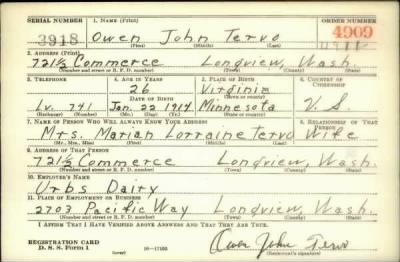 SERIAL NUMBER 1. NAME (Print) ORDER NUMBER
3918 Owen John Tervo 4909
(First) (Middle) (Last)
2. ADDRESS (Print)
721½ Commerce Longview, Wash.
(Number and street or R. F. D. number) (Town) (County) (State)
3. TELEPHONE 4. AGE IN YEARS 5. PLACE OF BIRTH 6. COUNTRY OF CITIZENSHIP
26 Virginia
DATE OF BIRTH (Town or county)
Lv. 741 Jan. 22 1914 Minnesota U. S.
(Exchange) (Number) (Mo.) (Day) (Yr.) (State or country)
7. NAME OF PERSON WHO WILL ALWAYS KNOW YOUR ADDRESS 8. RELATIONSHIP OF THAT PERSON
Mrs. Marian Lorraine Tervo Wife
(Mr., Mrs., Miss) (First) (Middle) (Last)
9. ADDRESS OF THAT PERSON
721½ Commerce Longview, Wash.
(Number and street or R. F. D. number) (Town) (County) (State)
10. EMPLOYER'S NAME
Orbs Dairy
11. PLACE OF EMPLOYMENT OR BUSINESS
2703 Pacific Way Longview, Wash.
(Number and street or R. F. D. number) (Town) (County) (State)
I AFFIRM THAT I HAVE VERIFIED ABOVE ANSWERS AND THAT THEY ARE TRUE.
REGISTRATION CARD
D. S. S. Form 1 (over) 16—17105 Owen John Tervo
(Registrant's signature)